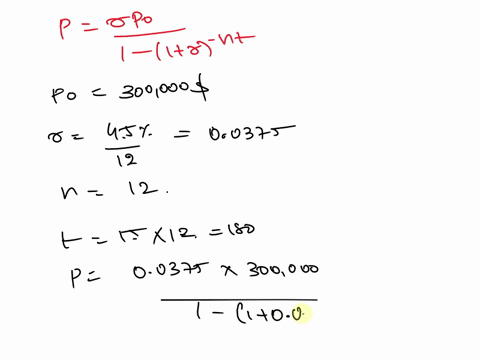 P = rP0 / 1-(1+r)^-nt
P0 = 300,000$
r = 4.5% / 12 = 0.0375
n = 12.
t = 15 × 12 = 180
P = 0.0375 × 300,000 / 1 - (1+0.0